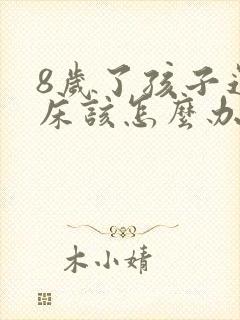 8歲了孩子還
床該怎麼办
木小婧